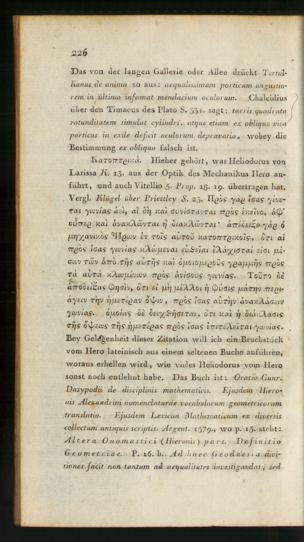 226
Das von der langen Gallerie oder Allee drückt Tertul-
lianus de anima so aus: aequalissimam porticum angustio-
rem in ultimo infamat mendacium oculorum. Chalcidius
über den Timaeus des Plato S. 331. sagt: turris quadrata
rotunditatem simulat cylindri, atque etiam ex obliquo visa
porticus in exile deficit oculorum depravatio, wobey die
Bestimmung ex obliquo falsch ist.
Κατοπτρικά. Hieher gehört, was Heliodorus von
Larissa K. 13. aus der Optik des Mechanikus Hero an-
führt, und auch Vitellio 5. Prop. 18. 19. übertragen hat.
Vergl. Klügel über Priestley S. 23. Πρὸς γὰρ ἴσας γίνε-
ται γωνίας ἀεὶ, αἳ δὴ καὶ συνίστανται πρὸς ἐκεῖνο, ἀφ'
οὗπερ καὶ ἀνακλῶνται ἢ διακλῶνται· ἀπέδειξε γὰρ ὁ
μηχανικὸς Ἥρων ἐν τοῖς αὑτοῦ κατοπτρικοῖς, ὅτι αἱ
πρὸς ἴσας γωνίας κλώμεναι εὐθεῖαι ἐλάχισται εἰσι μέ-
σων τῶν ἀπὸ τῆς αὐτῆς καὶ ὁμοιομεροῦς γραμμῆς πρὸς
τὰ αὐτὰ κλωμένων πρὸς ἀνίσους γωνίας. Τοῦτο δὲ
ἀποδείξας φησὶν, ὅτι εἰ μὴ μέλλοι ἡ φύσις μάτην περι-
άγειν τὴν ἡμετέραν ὄψιν, πρὸς ἴσας αὐτὴν ἀνακλάσει
γωνίας. ὁμοίως δὲ δειχθήσεται, ὅτι καὶ ἡ διάκλασις
τῆς ὄψεως τῆς ἡμετέρας πρὸς ἴσας ἐπιτελεῖται γωνίας.
Bey Gelegenheit dieser Zitation will ich ein Bruchstück
vom Hero lateinisch aus einem seltenen Buche anführen,
woraus erhellen wird, wie vieles Heliodorus vom Hero
sonst noch entlehnt habe. Das Buch ist: Oratio Cunr.
Dasypodii de disciplinis mathematicis. Ejusdem Hiero-
nis Alexandrini nomenclaturae vocabulorum geometricorum
translatio. Ejusdem Lexicon Mathematicum ex diversis
collectum antiquis scriptis. Argent. 1579. wo p. 15. steht:
Altera Onomastici (Hieronis) pars. Definitio
Geometriae. P. 16. b. Ad haec Geodaesia divi-
tiones facit non tantum ad aequalitates investigandas, sed